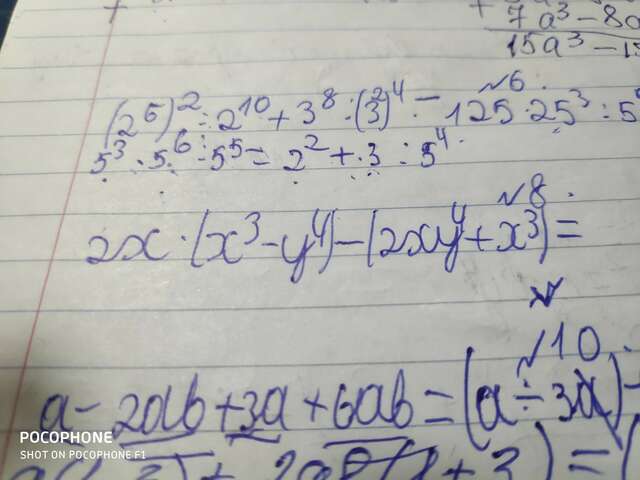 7a³ - 8a
15a³ - 1
№6.
(2⁶)² : 2¹⁰ + 3⁸ : (3²)⁴ - 125 · 25³ : 5
5³ · 5⁶ : 5⁵ = 2² + 3 : 5⁴
№8.
2x · (x³ - y⁴) - (2xy⁴ + x³) =
№10.
a - 2ab + 3a + 6ab = (a ÷ 3a) -
POCOPHONE
SHOT ON POCOPHONE F1